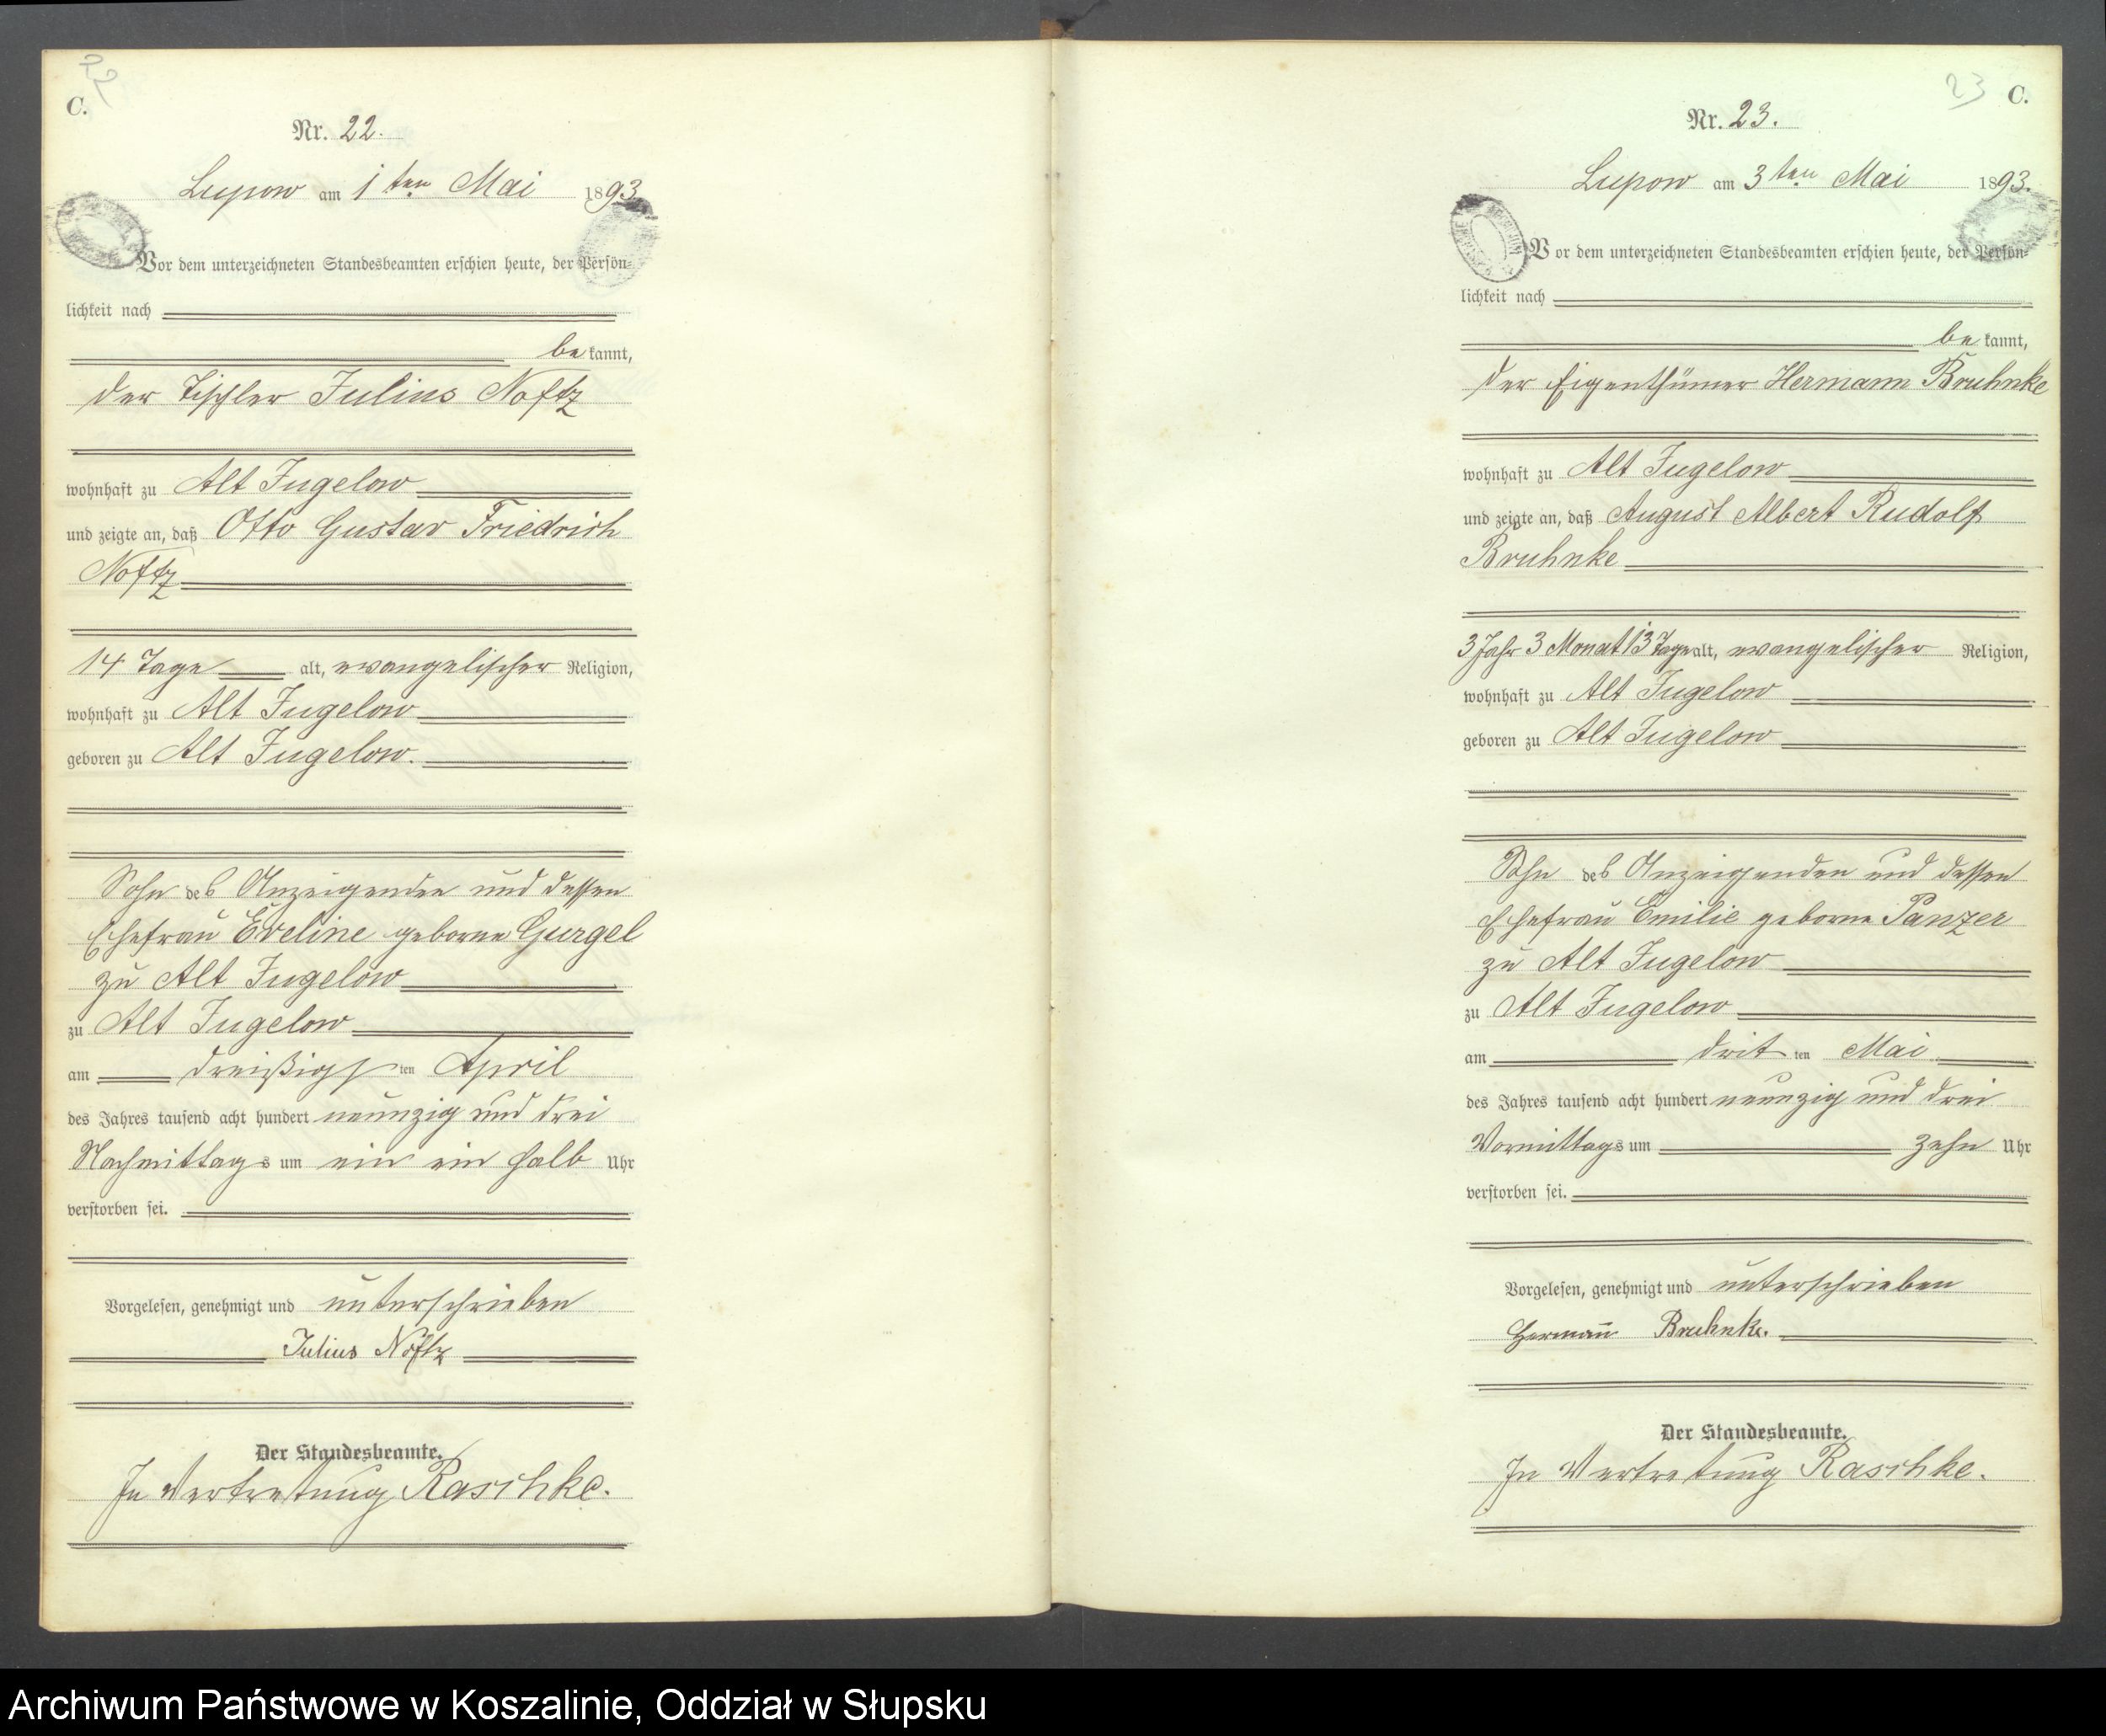 22
C.
Nr. 22.
Lupow am 1ten Mai 1893.
Vor dem unterzeichneten Standesbeamten erschien heute, der Persön-
lichkeit nach
bekannt,
der Tischler Julius Noftz
wohnhaft zu Alt Jugelow
und zeigte an, daß Otto Gustav Friedrich
Noftz
14 Tage alt, evangelischer Religion,
wohnhaft zu Alt Jugelow
geboren zu Alt Jugelow.
Sohn des Anzeigenden und dessen
Ehefrau Eveline geborne Gurgel
zu Alt Jugelow
zu Alt Jugelow
am dreißigsten April
des Jahres tausend acht hundert neunzig und drei
Nachmittags um ein ein halb Uhr
verstorben sei.
Vorgelesen, genehmigt und unterschrieben
Julius Noftz
Der Standesbeamte.
In Vertretung Raschke.
23
C.
Nr. 23.
Lupow am 3ten Mai 1893.
Vor dem unterzeichneten Standesbeamten erschien heute, der Persön-
lichkeit nach
bekannt,
der Eigenthümer Hermann Bruhnke
wohnhaft zu Alt Jugelow
und zeigte an, daß August Albert Rudolf
Bruhnke
3 Jahr 3 Monat 13 Tage alt, evangelischer Religion,
wohnhaft zu Alt Jugelow
geboren zu Alt Jugelow
Sohn des Anzeigenden und dessen
Ehefrau Emilie geborne Panzer
zu Alt Jugelow
zu Alt Jugelow
am dritten Mai
des Jahres tausend acht hundert neunzig und drei
Vormittags um zehn Uhr
verstorben sei.
Vorgelesen, genehmigt und unterschrieben
Hermann Bruhnke.
Der Standesbeamte.
In Vertretung Raschke.
Archiwum Państwowe w Koszalinie, Oddział w Słupsku